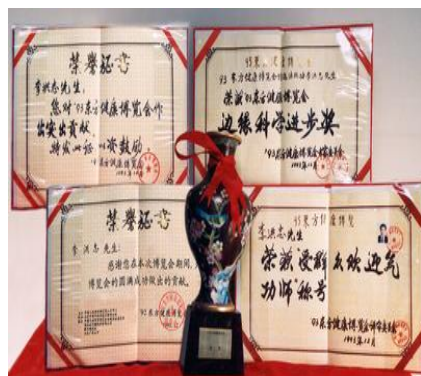 荣誉证书
李洪志先生：
您对'93东方健康博览会作
出突出贡献，
特发此证，以资鼓励。
'93东方健康博览会
1993年12月
荣获'93东方健康博览会
边缘科学进步奖
1993年12月
荣誉证书
李洪志先生:
感谢您在本次博览会期间，
博览会的圆满成功做出的贡献。
'93东方健康博览会
'93东方健康博览
李洪志先生
荣获受群众欢迎气
功师称号
'93东方健康博览会评审委员会
1993年12月